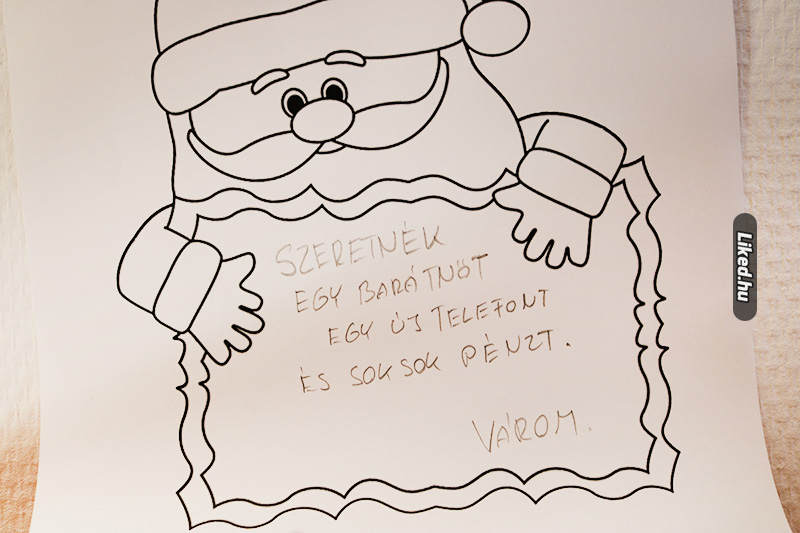 SZERETNÉK
EGY BARÁTNŐT
EGY ÚJ TELEFONT
ÉS SOK SOK PÉNZT.
VÁROM.
Liked.hu